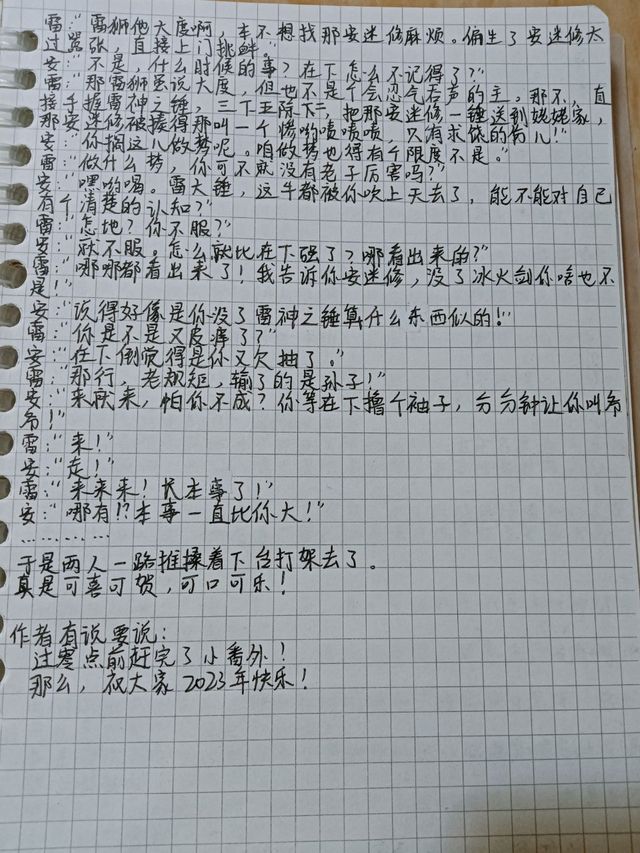 雷:“雷狮他大度啊,本不想找那安迷修麻烦。偏生了安迷修太
过嚣张,直接上门挑衅。”
安:“不是,什么时候的事?在下怎么不记得了?”
雷:“那雷狮虽说大度,但也不是个会忍气吞声的主。那不,直
接手握雷神之锤,三下五除下二,把那安迷修一锤送到姥姥家,
那安迷修被揍得那叫一个惨哟啧啧啧,只有求饶的份儿!”
安:“你搁这儿做梦呢。咱做梦也得有个限度不是。”
雷:“做什么梦,你可不就没有老子厉害吗?”
安:“嘿哟喝。雷大锤,这牛都被你吹上天去了,能不能对自己
有个清楚的认知?”
雷:“怎地?你不服?”
安:“就不服。怎么就比在下强了?哪看出来的?”
雷:“哪哪都看出来了!我告诉你安迷修,没了冰火剑你啥也不
是!”
安:“说得好像是你没了雷神之锤算什么东西似的!”
雷:“你是不是又皮痒了?”
安:“在下倒觉得是你又欠抽了。”
雷:“那行,老规矩,输了的是孙子!”
安:“来就来,怕你不成?你等在下撸个袖子,分分钟让你叫爷
爷!”
雷:“来!”
安:“走!”
雷:“来来来!长本事了!”
安:“哪有!?本事一直比你大!”
…………
于是两人一路推搡着下台打架去了。
真是可喜可贺,可口可乐!
作者有说要说:
过零点前赶完了小番外!
那么,祝大家2023年快乐!